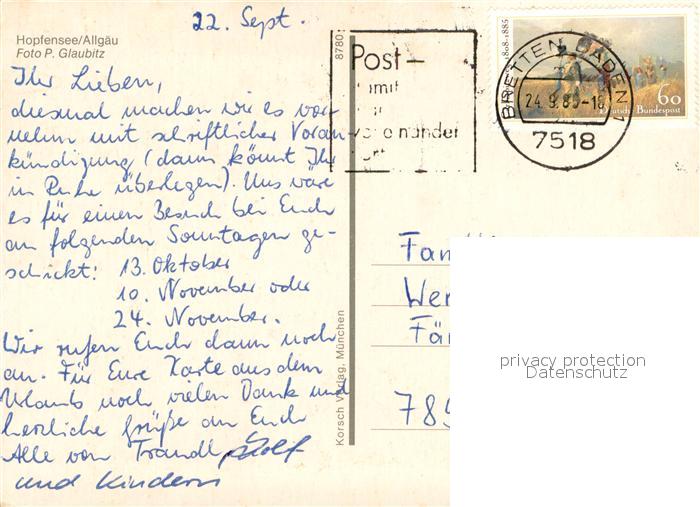 Hopfensee/Allgäu
Foto P. Glaubitz
22. Sept.
Ihr Lieben,
diesmal machen wir es vor-
nehm mit schriftlicher Voran-
kündigung (dann könnt Ihr
in Ruhe überlegen). Uns wäre
es für einen Besuch bei Euch
an folgenden Sonntagen ge-
schickt: 13. Oktober
10. November oder
24. November.
Wir rufen Euch dann noch
an. Für Eure Karte aus dem
Urlaub noch vielen Dank und
herzliche Grüße an Euch
Alle von Traudl, Rolf
und Kindern
8780
Korsch Verlag, München
Post-
BRETTEN, BADEN 1
24.9.85-18
7518
1808-1885
60
Deutsche Bundespost
Fam
Wer
Fär
78
privacy protection
Datenschutz